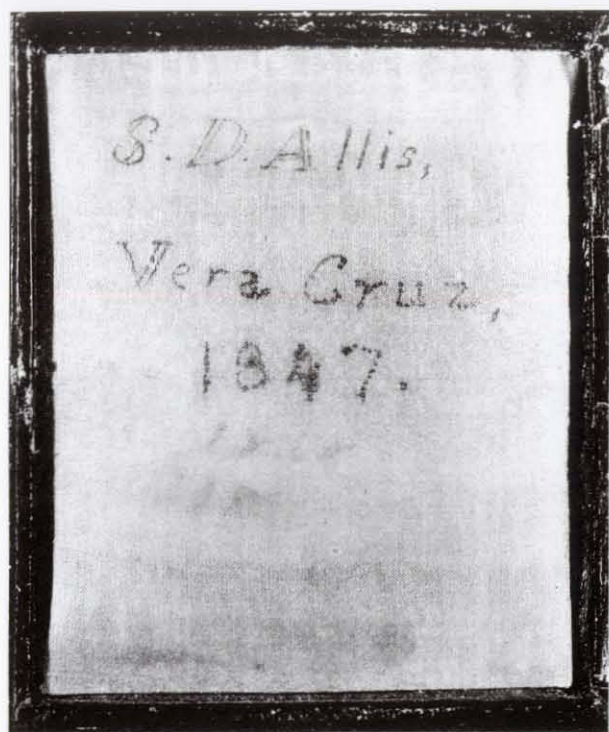 S. D. Allis,
Vera Cruz,
1847.